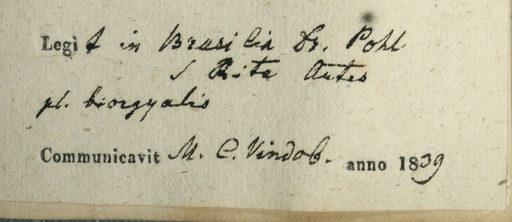 Legit in Brasilia Dr. Pohl
S Rita Antas
pl. biorgyalis
Communicavit M. C. Vindob. anno 1839